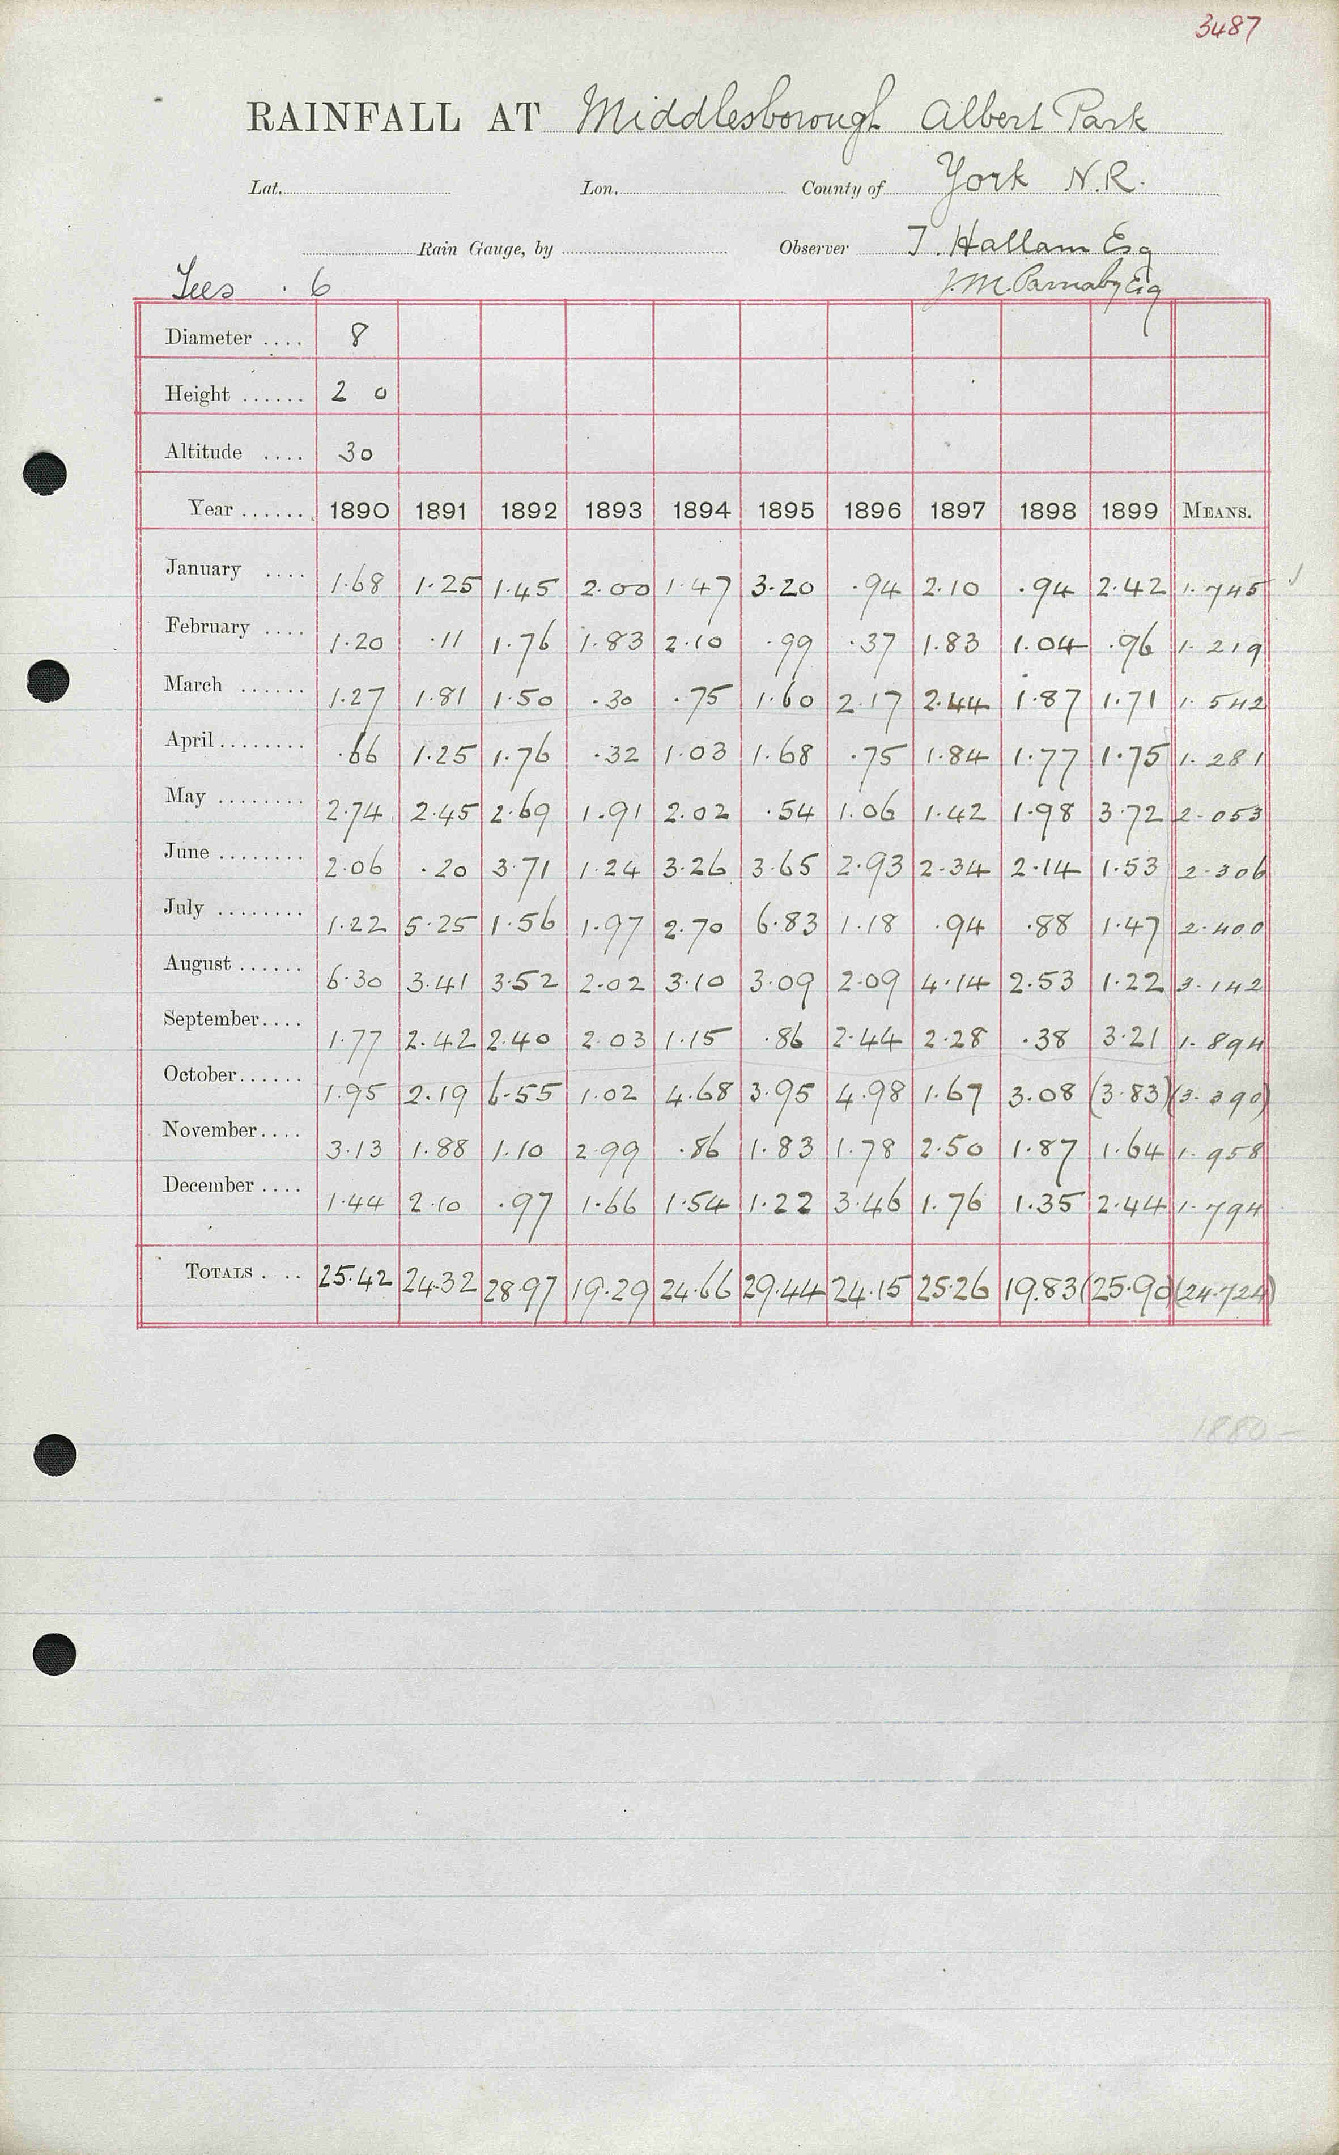 3487
RAINFALL AT Middlesborough Albert Park
Lat. Lon. County of York N.R.
Rain Gauge, by Observer T. Hallam Esq
Tees . 6 J. M. Parnaby Esq
Diameter .... 8
Height ...... 2 0
Altitude .... 30
Year ...... 1890 1891 1892 1893 1894 1895 1896 1897 1898 1899 MEANS.
January .... 1.68 1.25 1.45 2.00 1.47 3.20 .94 2.10 .94 2.42 1.745
February .... 1.20 .11 1.76 1.83 2.10 .99 .37 1.83 1.04 .96 1.219
March ...... 1.27 1.81 1.50 .30 .75 1.60 2.17 2.44 1.87 1.71 1.542
April ........ .66 1.25 1.76 .32 1.03 1.68 .75 1.84 1.77 1.75 1.281
May ........ 2.74 2.45 2.69 1.91 2.02 .54 1.06 1.42 1.98 3.72 2.053
June ........ 2.06 .20 3.71 1.24 3.26 3.65 2.93 2.34 2.14 1.53 2.306
July ........ 1.22 5.25 1.56 1.97 2.70 6.83 1.18 .94 .88 1.47 2.400
August ...... 6.30 3.41 3.52 2.02 3.10 3.09 2.09 4.14 2.53 1.22 3.142
September .... 1.77 2.42 2.40 2.03 1.15 .86 2.44 2.28 .38 3.21 1.894
October ...... 1.95 2.19 6.55 1.02 4.68 3.95 4.98 1.67 3.08 (3.83) (3.390)
November .... 3.13 1.88 1.10 2.99 .86 1.83 1.78 2.50 1.87 1.64 1.958
December .... 1.44 2.10 .97 1.66 1.54 1.22 3.46 1.76 1.35 2.44 1.794
TOTALS .... 25.42 24.32 28.97 19.29 24.66 29.44 24.15 25.26 19.83 (25.90) (24.724)
1880 –